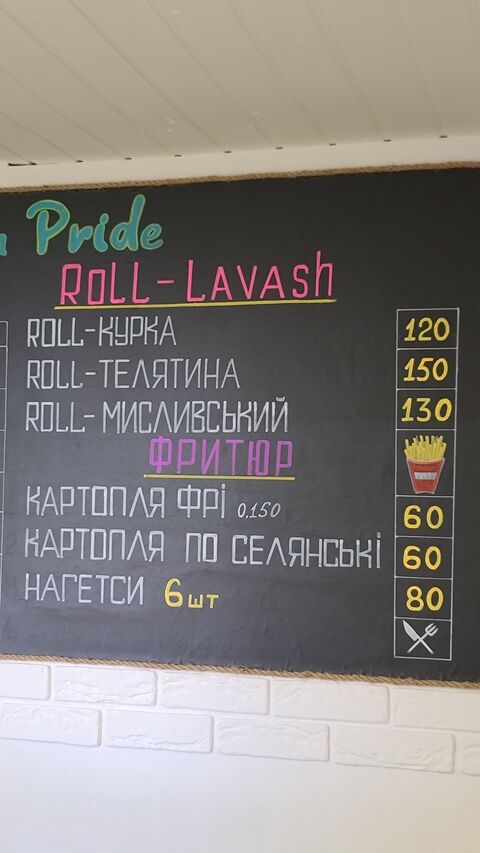 Pride
ROLL-LAVASh
ROLL-КУРКА 120
ROLL-ТЕЛЯТИНА 150
ROLL-МИСЛИВСЬКИЙ 130
ФРИТЮР
КАРТОПЛЯ ФРІ 0,150 60
КАРТОПЛЯ ПО СЕЛЯНСЬКІ 60
НАГЕТСИ 6шт 80